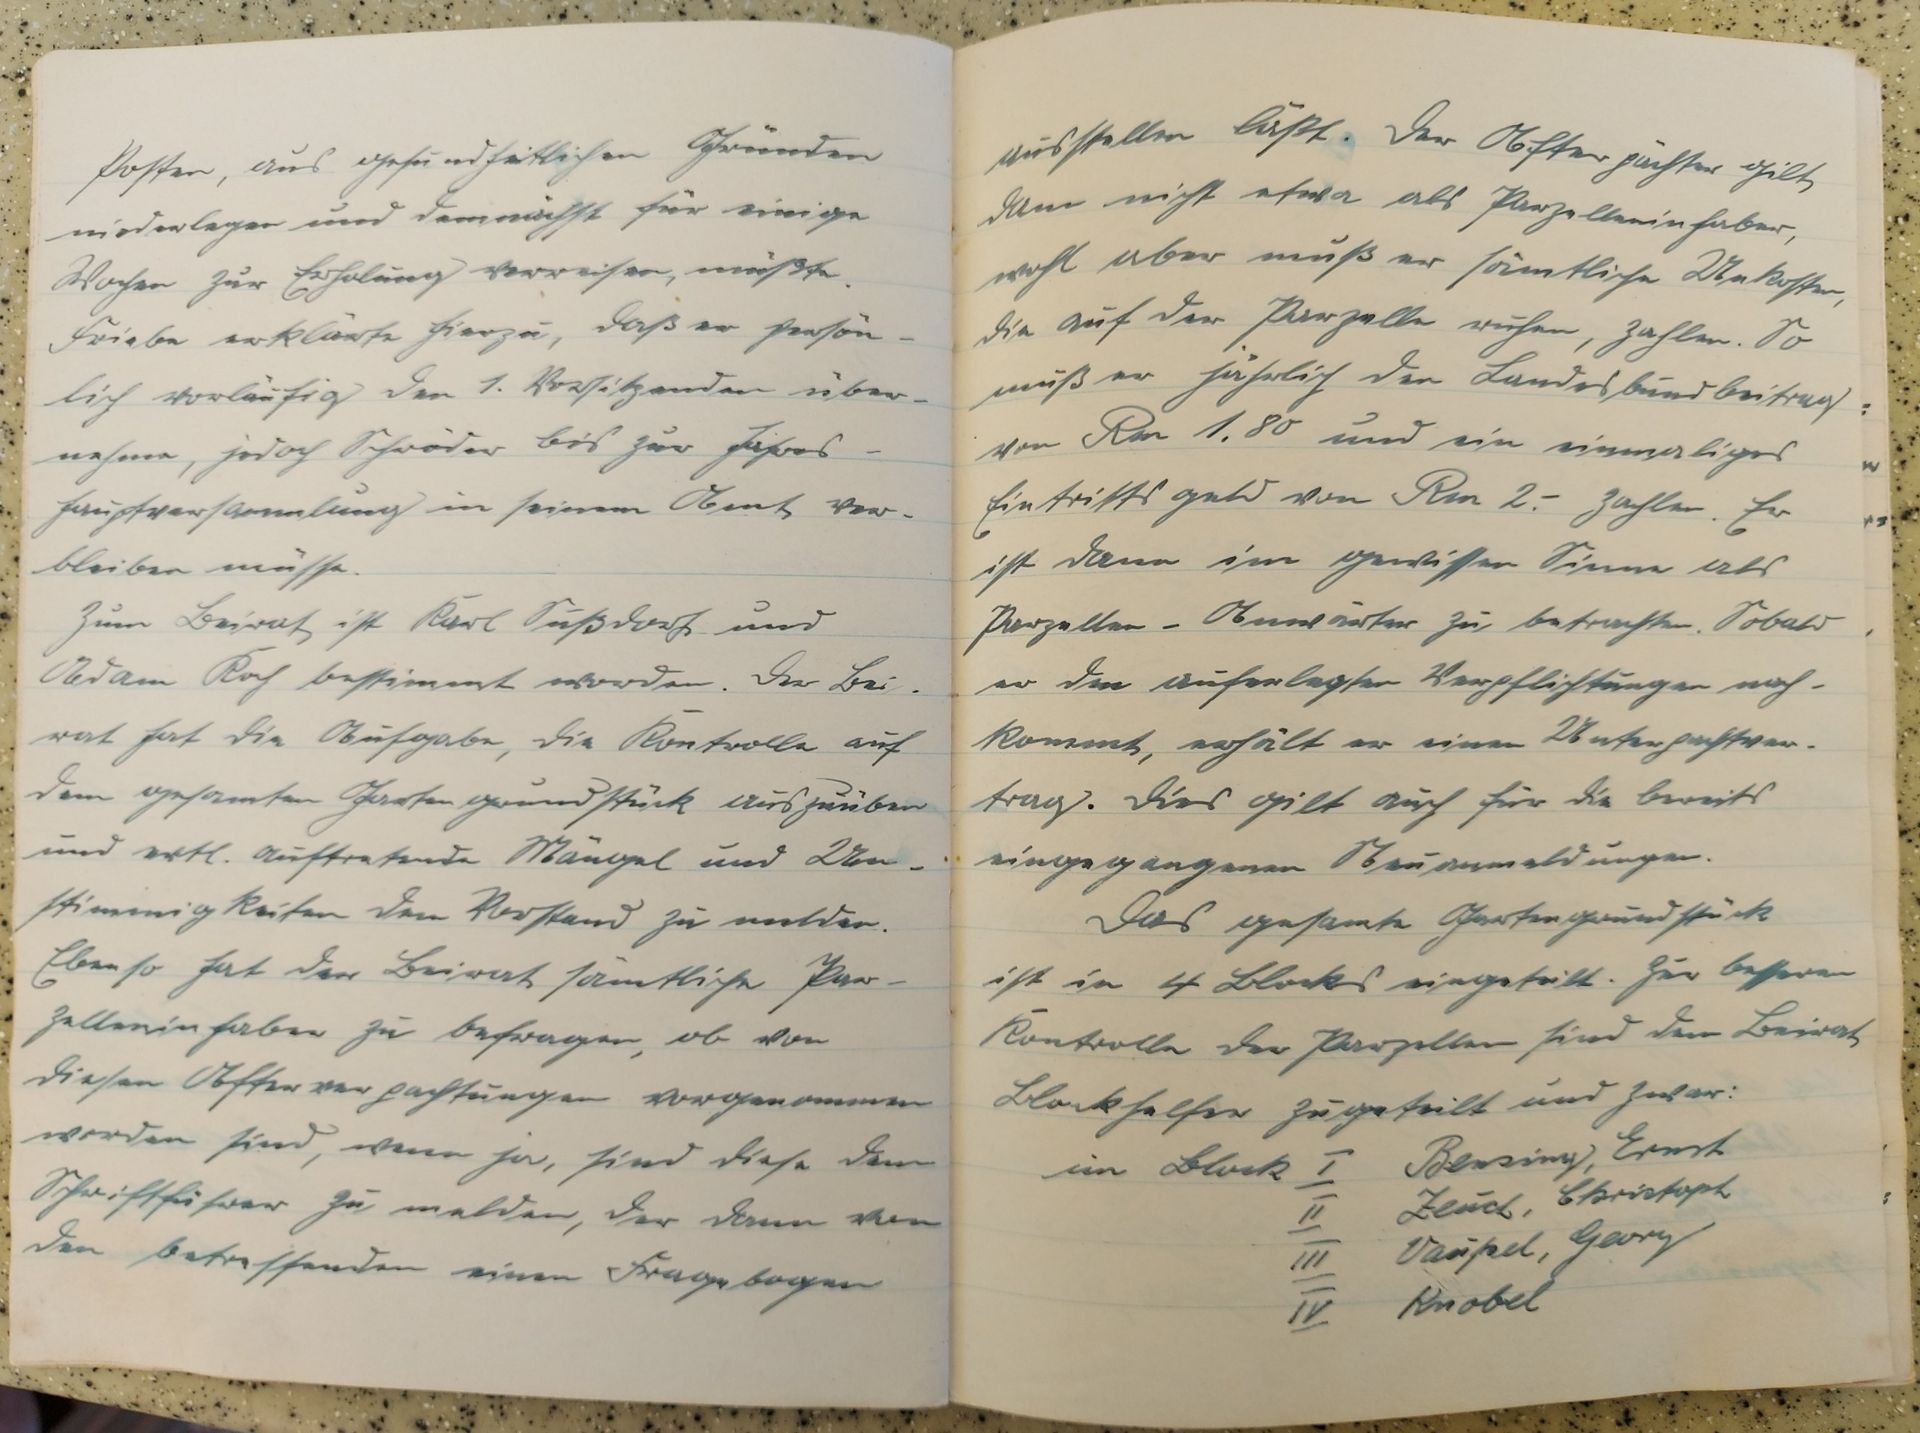 Posten, aus gesundheitlichen Gründen
niederlegen und demnächst für einige
Wochen zur Erholung verreisen, müßte.
Friebe erklärte hierzu, daß er persön-
lich vorläufig den 1. Vorsitzenden über-
nehme, jedoch Schröder bis zur Jahres-
hauptversammlung in seinem Amt ver-
bleiben müsse.
Zum Beirat ist Karl Sußdorf und
Adam Koch bestimmt worden. Der Bei-
rat hat die Aufgabe, die Kontrolle auf
dem gesamten Gartengrundstück auszuüben
und evtl. auftretende Mängel und Un-
stimmigkeiten dem Vorstand zu melden.
Ebenso hat der Beirat sämtliche Par-
zelleninhaber zu befragen, ob von
diesen Afterverpachtungen vorgenommen
worden sind, wenn ja, sind diese dem
Schriftführer zu melden, der dann von
den betreffenden einen Fragebogen
ausstellen läßt. Der Afterpächter gilt
dann nicht etwa als Parzelleninhaber,
wohl aber muß er sämtliche Unkosten,
die auf der Parzelle ruhen, zahlen. So
muß er jährlich den Landesbundbeitrag
von Rm 1.80 und ein einmaliges
Eintrittsgeld von Rm 2.- zahlen. Er
ist dann im gewissen Sinne als
Parzellen-Anwärter zu betrachten. Sobald
er den auferlegten Verpflichtungen nach-
kommt, erhält er einen Unterpachtver-
trag. Dies gilt auch für die bereits
eingegangenen Neuanmeldungen.
Das gesamte Gartengrundstück
ist in 4 Blocks eingeteilt. Zur besseren
Kontrolle der Parzellen sind dem Beirat
Blockhelfer zugeteilt und zwar:
im Block I Bensing, Ernst
II Zeuch, Christoph
III Vaupel, Georg
IV Knobel